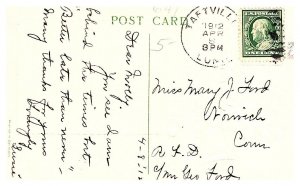 POST CARD
TAFTVILLE
1912
APR
8
8PM
CONN.
Dear
You see I am
behind the times but
"Better late than never"
Many thanks for yours
4-8'12
Miss Mary J Ford
Norwich
Conn
R F D
c/o Geo Ford